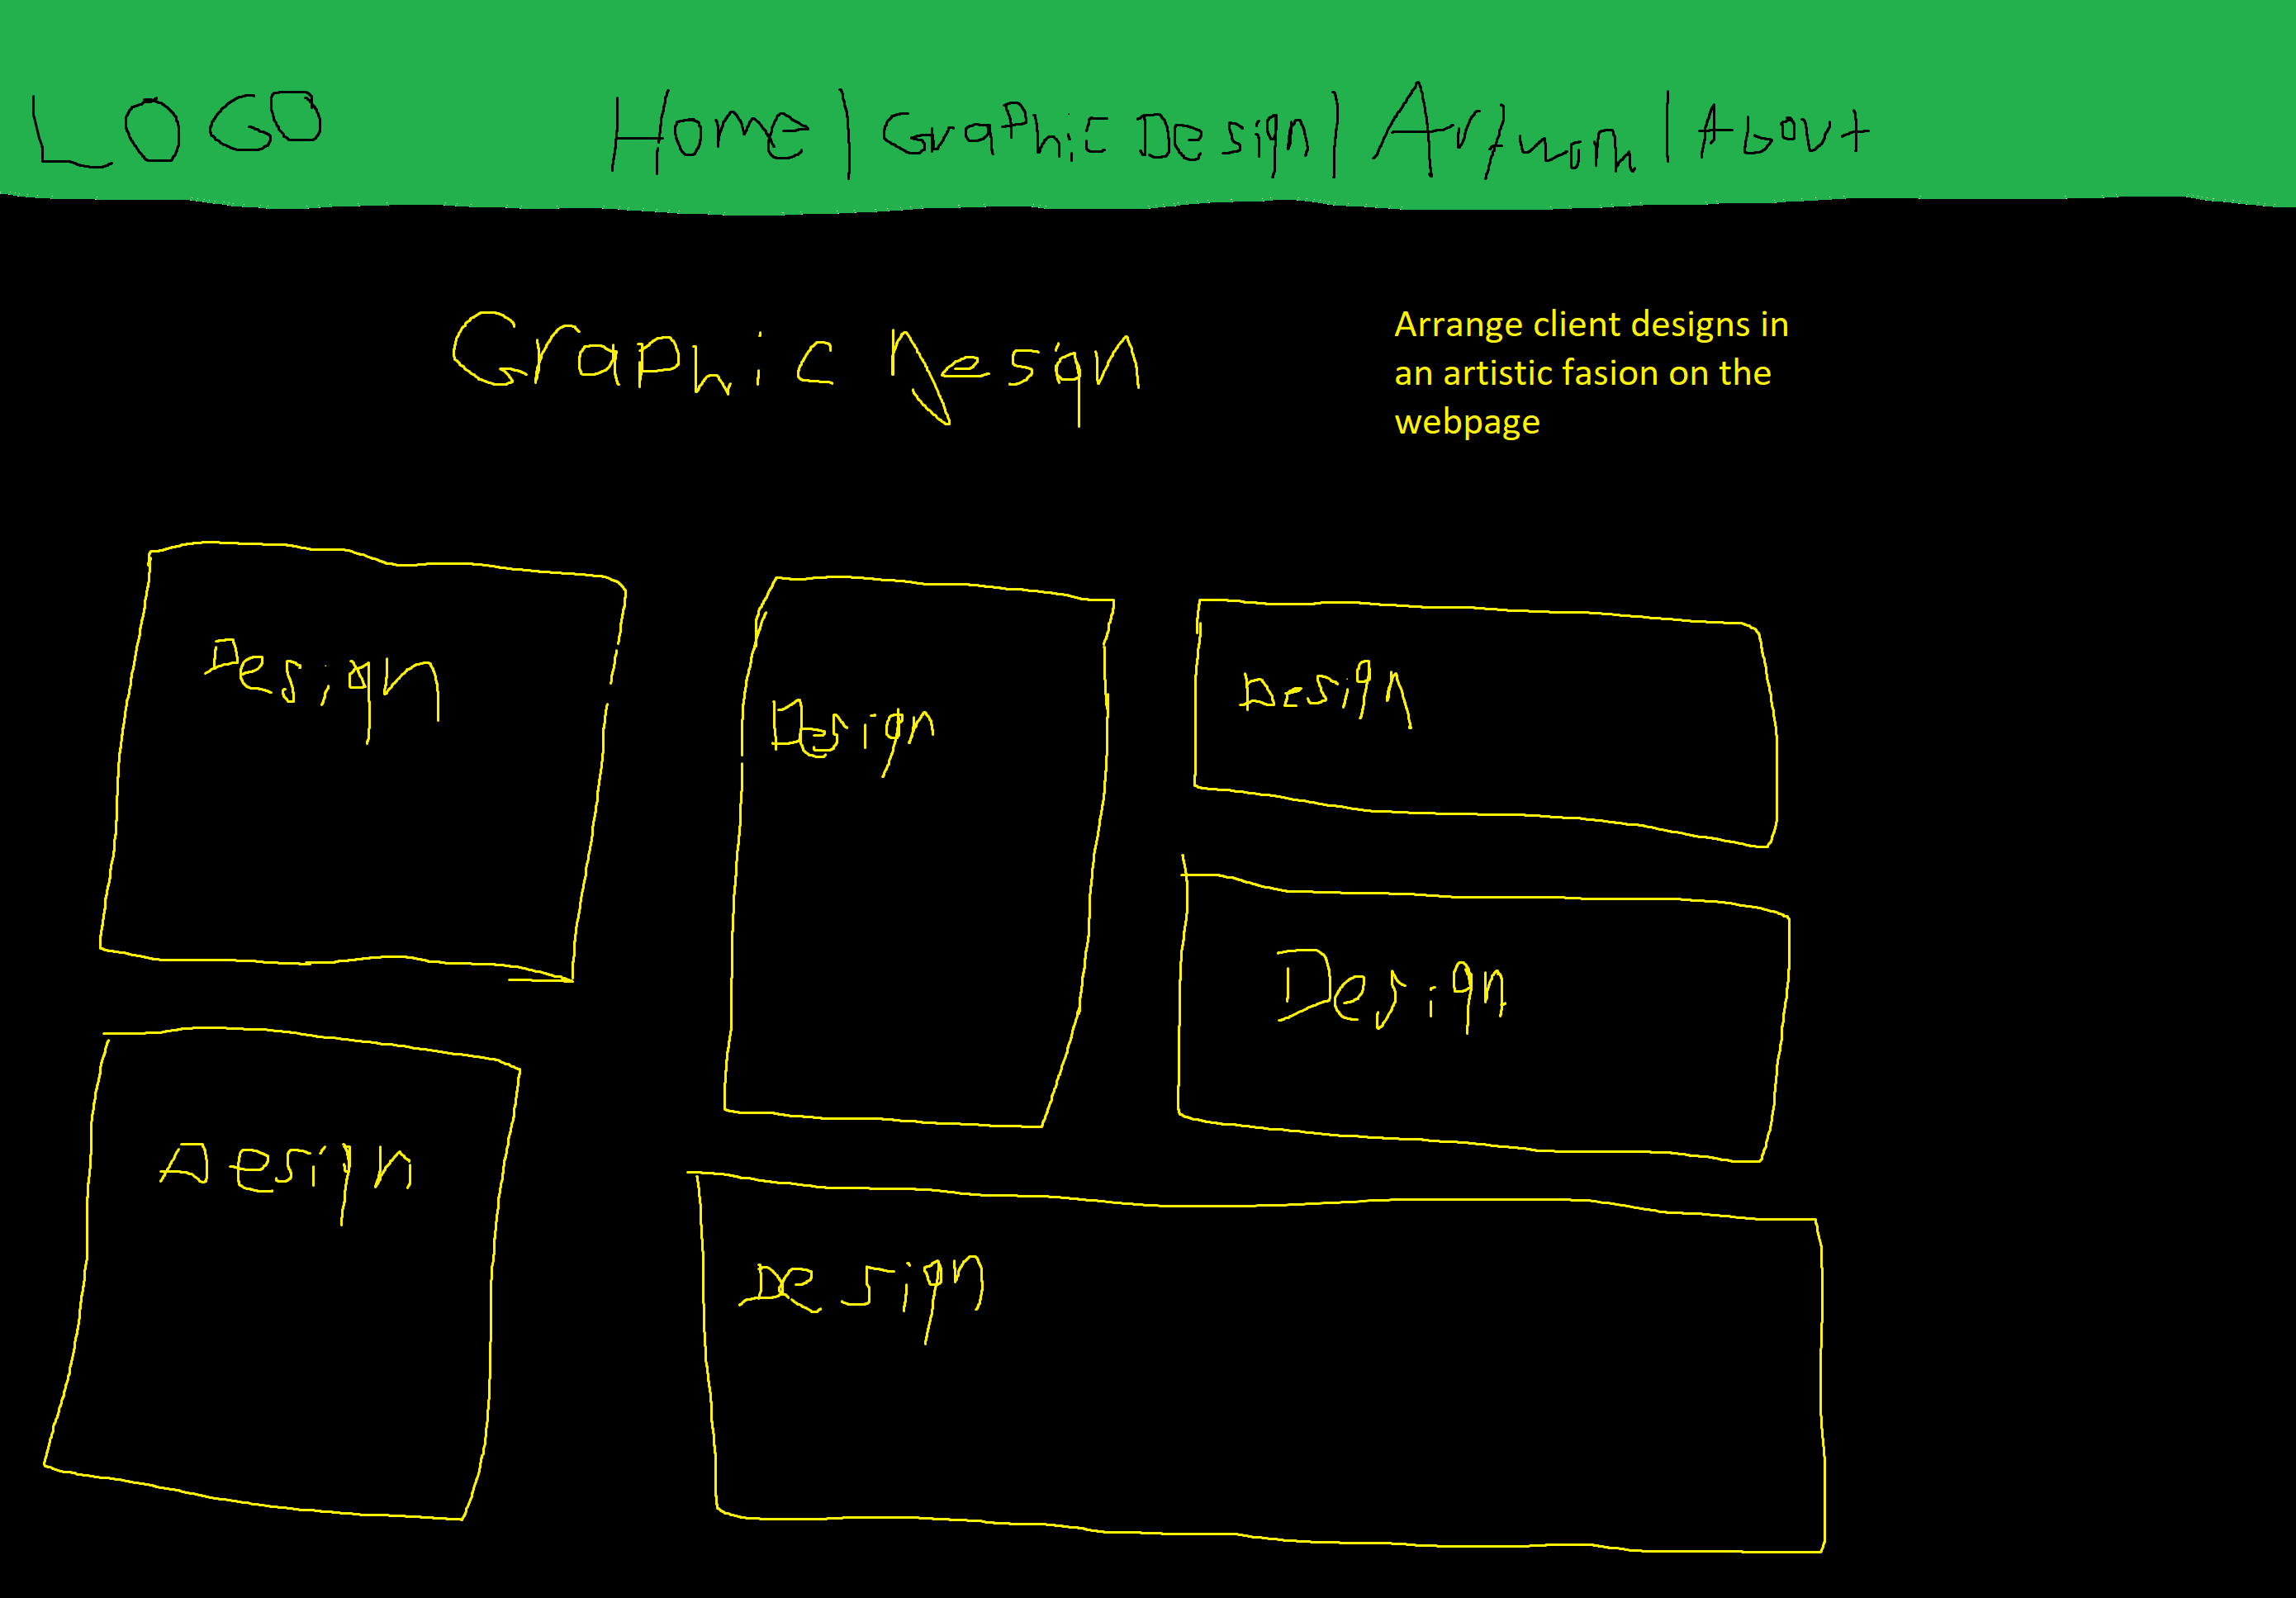 LOGO
Home | Graphic Design | Artwork | About
Graphic Design
Arrange client designs in
an artistic fasion on the
webpage
Design
Design
Design
Design
Design
Design